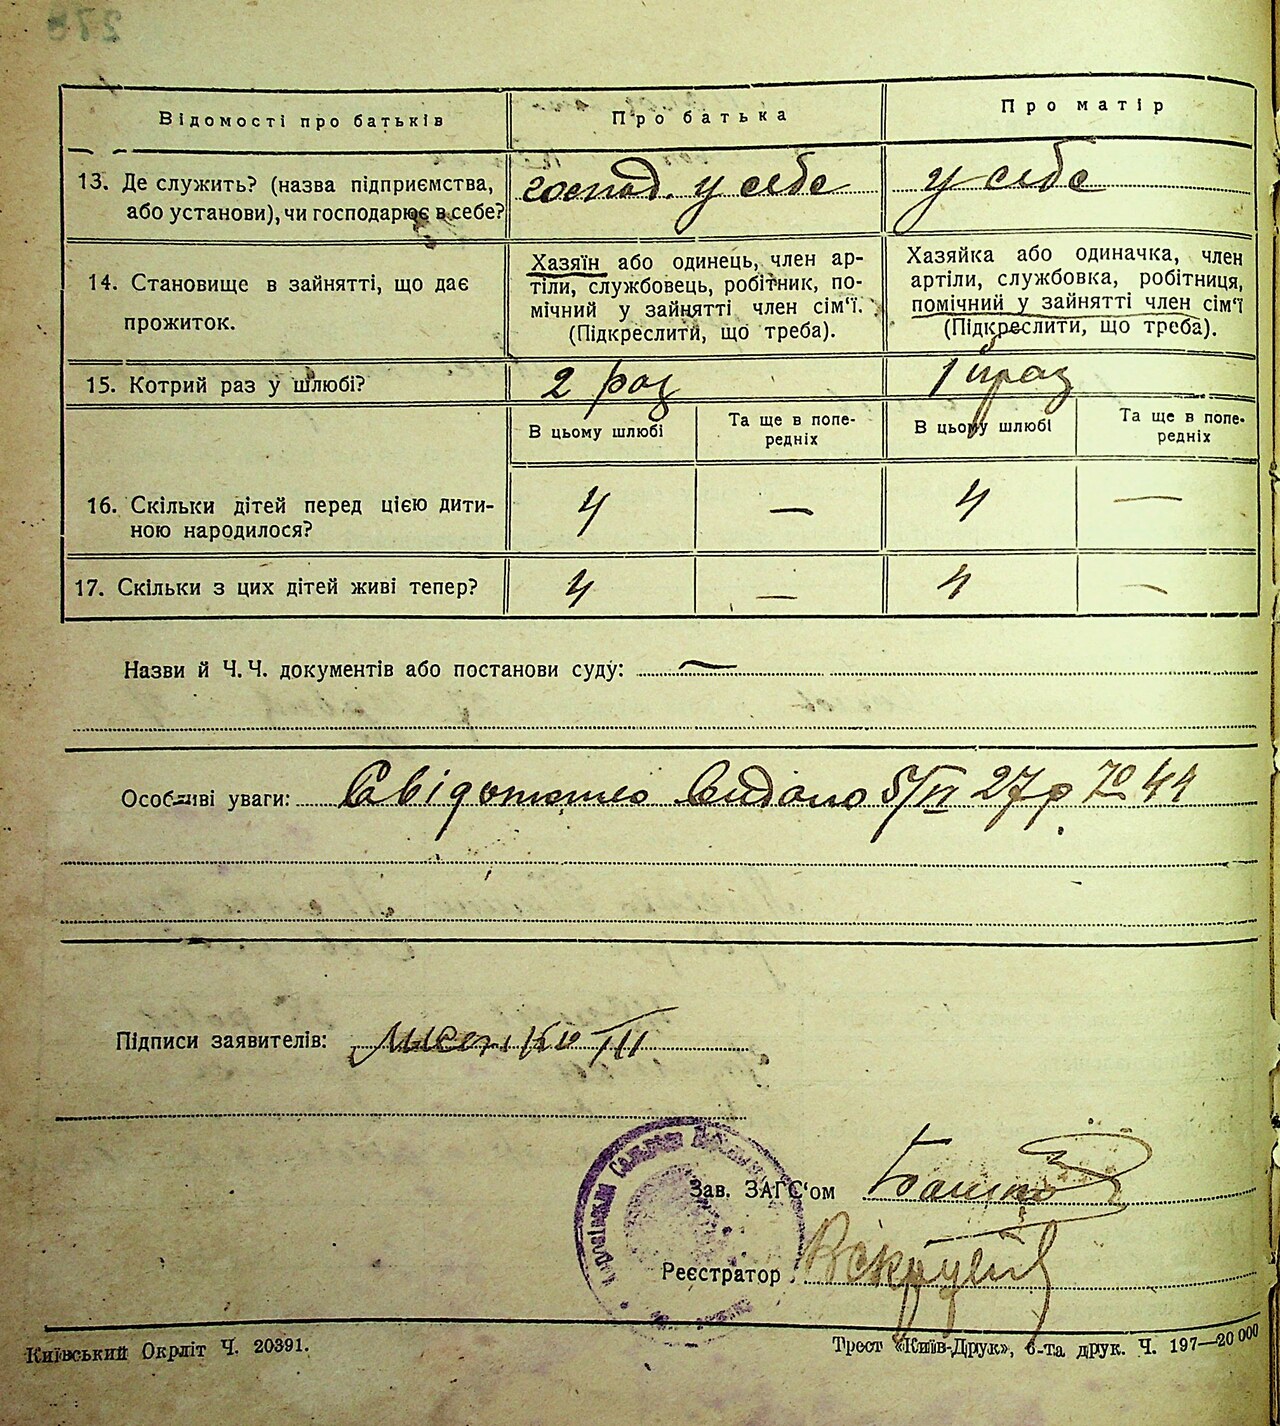 Відомості про батьків
Про батька
Про матір
13. Де служить? (назва підприємства,
або установи), чи господарює в себе?
господ. у себе
у себе
14. Становище в зайнятті, що дає
прожиток.
Хазяїн або одинець, член ар-
тіли, службовець, робітник, по-
мічний у зайнятті член сім'ї.
(Підкреслити, що треба).
Хазяйка або одиначка, член
артіли, службовка, робітниця,
помічний у зайнятті член сім'ї
(Підкреслити, що треба).
15. Котрий раз у шлюбі?
2 раз
1 й раз
В цьому шлюбі
Та ще в попе-
редніх
В цьому шлюбі
Та ще в попе-
редніх
16. Скільки дітей перед цією дити-
ною народилося?
4 — 4 —
17. Скільки з цих дітей живі тепер?
4 — 4 —
Назви й Ч. Ч. документів або постанови суду: —
Особливі уваги: Свідоцтво видано 27р № 44
Підписи заявителів:
Зав. ЗАГС'ом
Реєстратор
Київський Окрліт Ч. 20391.
Трест «Київ-Друк», 6-та друк. Ч. 197—20 000